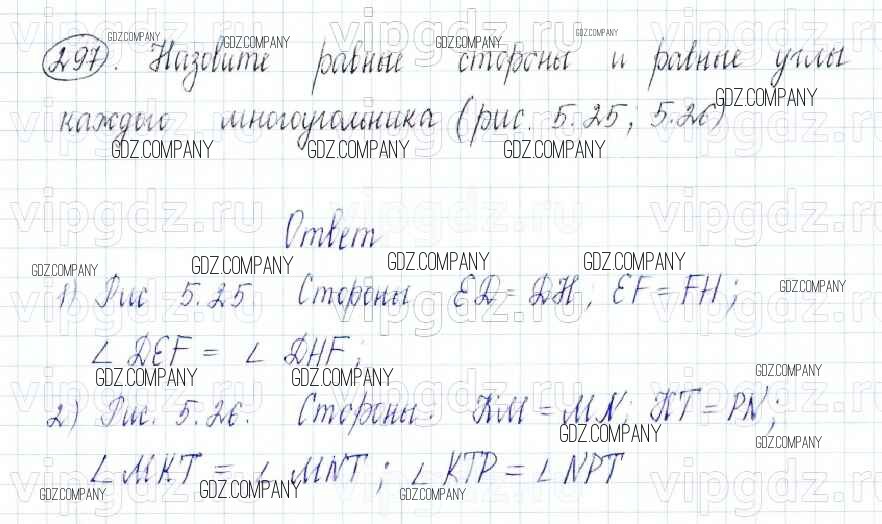 297. Назовите равные стороны и равные углы
каждого многоугольника (рис. 5.25; 5.26)
Ответ
1) Рис 5.25. Стороны ED = DH; EF = FH;
∠ DEF = ∠ DHF;
2) Рис. 5.26. Стороны: KM = MN; KT = PN;
∠ MKT = ∠ MNT; ∠ KTP = ∠ NPT
GDZ.COMPANY
vipgdz.ru